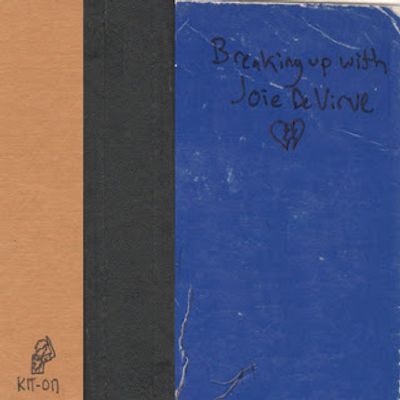 Breaking up with
Joie De Virve
KIT-ON